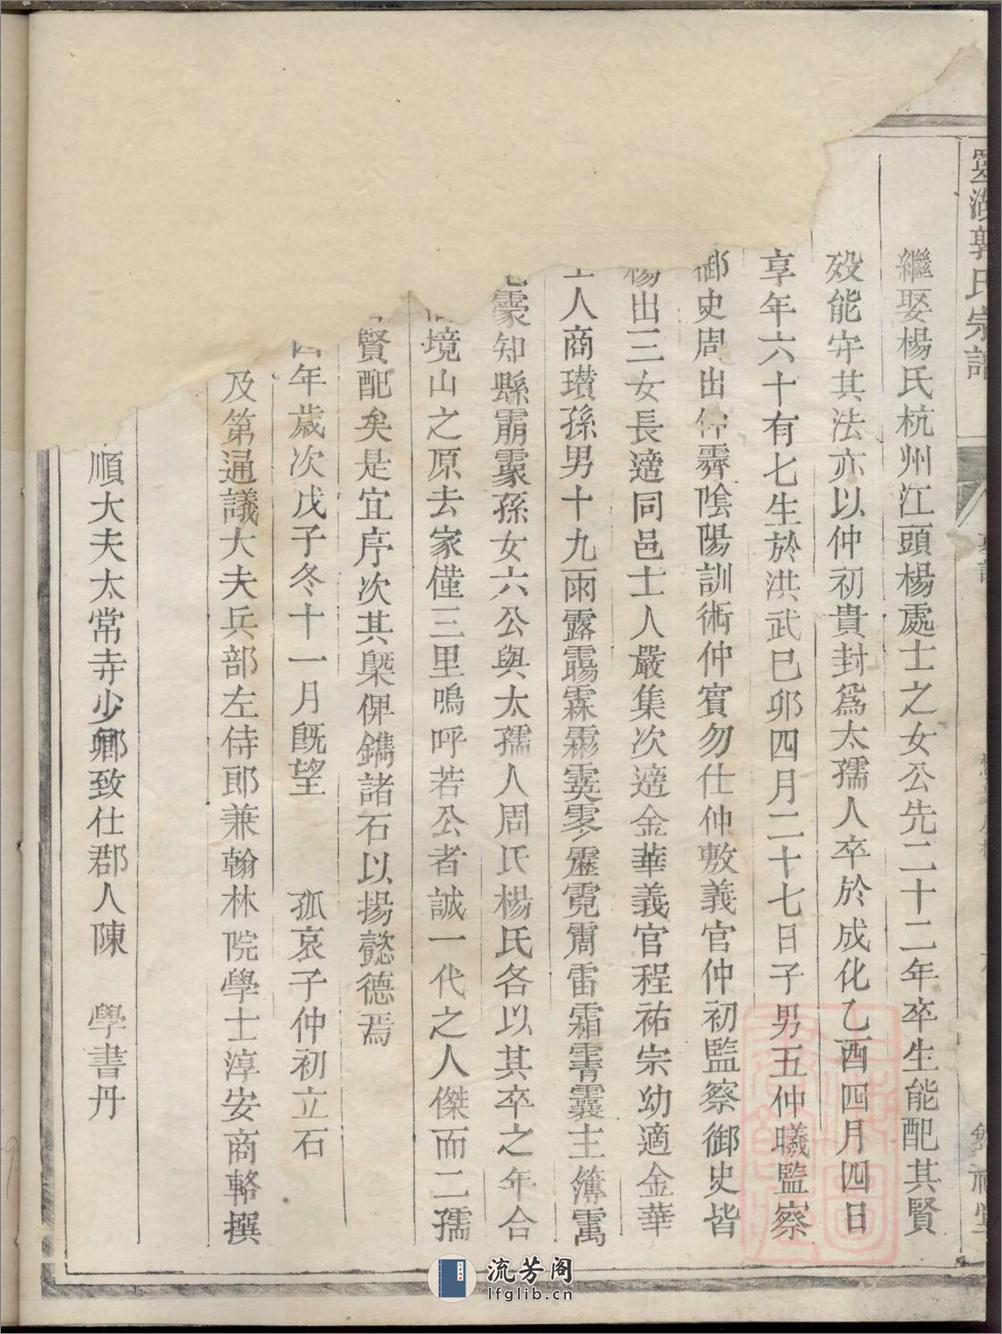 湖郭氏宗譜
繼娶楊氏杭州江頭楊處士之女公先二十二年卒生能配其賢
歿能守其法亦以仲初貴封為太孺人卒於成化乙酉四月四日
享年六十有七生於洪武已卯四月二十七日子男五仲曦監察
御史周出仲霽陰陽訓術仲賓勿仕仲敷義官仲初監察御史皆
楊出三女長適同邑士人嚴集次適金華義官程祐宗幼適金華
士人商瓚孫男十九雨露霖雯零靂霓霌雷霜霄靈主簿
知縣孫女六公與太孺人周氏楊氏各以其卒之年合
境山之原去家僅三里嗚呼若公者誠一代之人傑而二孺
賢配矣是宜序次其槩俾鐫諸石以揚懿德焉
四年歲次戊子冬十一月既望 孤哀子仲初立石
及第通議大夫兵部左侍郎兼翰林院學士淳安商輅撰
順大夫太常寺少卿致仕郡人陳 學書丹
流芳阁
lfglib.cn